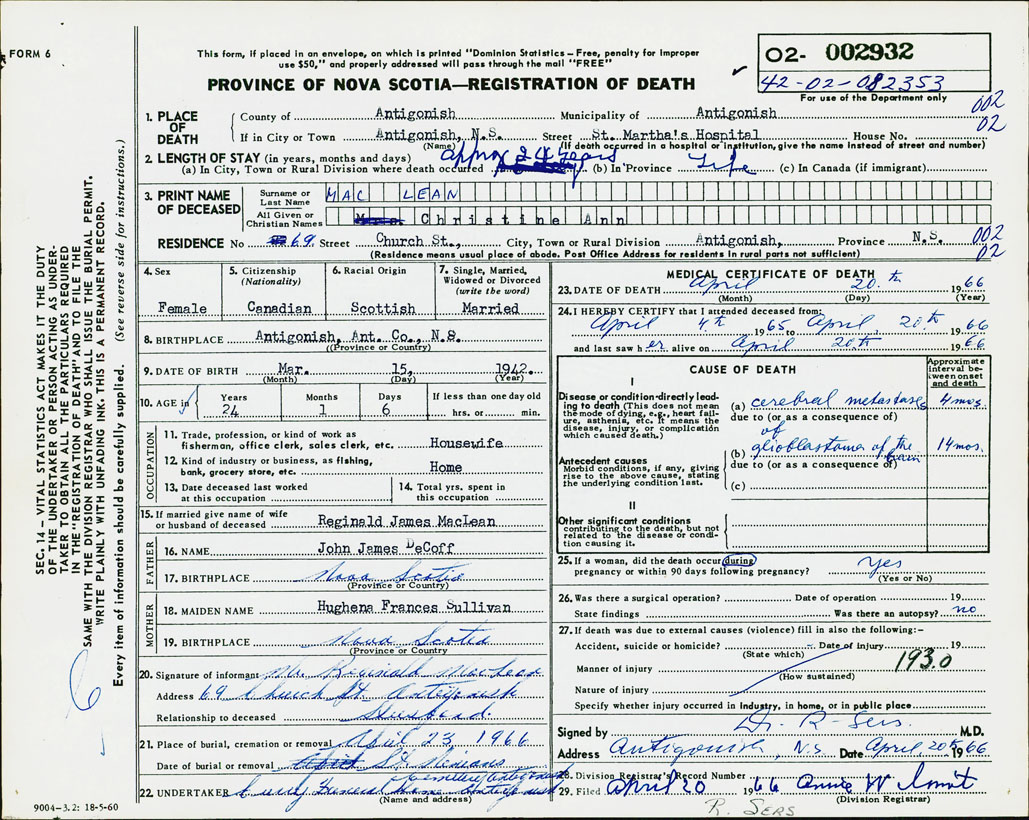 FORM 6
This form, if placed in an envelope, on which is printed "Dominion Statistics – Free, penalty for improper
use $50," and properly addressed will pass through the mail "FREE"
PROVINCE OF NOVA SCOTIA—REGISTRATION OF DEATH
O2- 002932
42-02-082353
For use of the Department only
002
02
1. PLACE OF DEATH
County of Antigonish Municipality of Antigonish
If in City or Town Antigonish, N.S. Street St. Martha's Hospital House No.
(Name) (If death occurred in a hospital or institution, give the name instead of street and number)
2. LENGTH OF STAY (in years, months and days)
(a) In City, Town or Rural Division where death occurred approx 24 years (b) In Province Life (c) In Canada (if immigrant)
3. PRINT NAME OF DECEASED
Surname or Last Name MAC LEAN
All Given or Christian Names Mrs. Christine Ann
RESIDENCE No 69 Street Church St., City, Town or Rural Division Antigonish, Province N.S.
002
02
(Residence means usual place of abode. Post Office Address for residents in rural parts not sufficient)
4. Sex
Female
5. Citizenship (Nationality)
Canadian
6. Racial Origin
Scottish
7. Single, Married, Widowed or Divorced (write the word)
Married
8. BIRTHPLACE Antigonish, Ant. Co., N.S.
(Province or Country)
9. DATE OF BIRTH Mar. 15, 1942.
(Month) (Day) (Year)
10. AGE in Years 24 Months 1 Days 6 If less than one day old hrs. or min.
OCCUPATION
11. Trade, profession, or kind of work as fisherman, office clerk, sales clerk, etc. Housewife
12. Kind of industry or business, as fishing, bank, grocery store, etc. Home
13. Date deceased last worked at this occupation
14. Total yrs. spent in this occupation
15. If married give name of wife or husband of deceased Reginald James MacLean
FATHER
16. NAME John James DeCoff
17. BIRTHPLACE Nova Scotia
(Province or Country)
MOTHER
18. MAIDEN NAME Hughena Frances Sullivan
19. BIRTHPLACE Nova Scotia
(Province or Country)
20. Signature of informant Mr. Reginald MacLean
Address 69 Church St. Antigonish
Relationship to deceased Husband.
21. Place of burial, cremation or removal April 23 1966
Date of burial or removal April St. Ninians
Cemetery Antigonish
22. UNDERTAKER Curry Funeral Home Antigonish
(Name and address)
9004-3.2: 18-5-60
MEDICAL CERTIFICATE OF DEATH
23. DATE OF DEATH April 20.th 1966
(Month) (Day) (Year)
24. I HEREBY CERTIFY that I attended deceased from:
April 4th 1965 to April, 20.th 1966
and last saw her alive on April 20th 1966
CAUSE OF DEATH
Approximate interval between onset and death
I
Disease or condition directly leading to death (This does not mean the mode of dying, e.g., heart failure, asthenia, etc. It means the disease, injury, or complication which caused death.)
(a) cerebral metastases 4 mos.
due to (or as a consequence of)
of
(b) glioblastoma of the brain 14 mos.
due to (or as a consequence of)
(c)
Antecedent causes
Morbid conditions, if any, giving rise to the above cause, stating the underlying condition last.
II
Other significant conditions
contributing to the death, but not related to the disease or condition causing it.
25. If a woman, did the death occur during pregnancy or within 90 days following pregnancy? Yes
(Yes or No)
26. Was there a surgical operation? Date of operation 19
State findings Was there an autopsy? no
27. If death was due to external causes (violence) fill in also the following:–
Accident, suicide or homicide? Date of injury 19
(State which)
Manner of injury 193.0
(How sustained)
Nature of injury
Specify whether injury occurred in industry, in home, or in public place
Signed by Dr. R-Sers. M.D.
Address Antigonish, N.S. Date April, 20th 1966
28. Division Registrar's Record Number
29. Filed April 20 1966 Annie W
(Division Registrar)
R. SERS
SEC. 14 – VITAL STATISTICS ACT MAKES IT THE DUTY
OF THE UNDERTAKER OR PERSON ACTING AS UNDER-
TAKER TO OBTAIN ALL THE PARTICULARS REQUIRED
IN THE "REGISTRATION OF DEATH" AND TO FILE THE
SAME WITH THE DIVISION REGISTRAR WHO SHALL ISSUE THE BURIAL PERMIT.
WRITE PLAINLY WITH UNFADING INK. THIS IS A PERMANENT RECORD.
Every item of information should be carefully supplied. (See reverse side for instructions.)